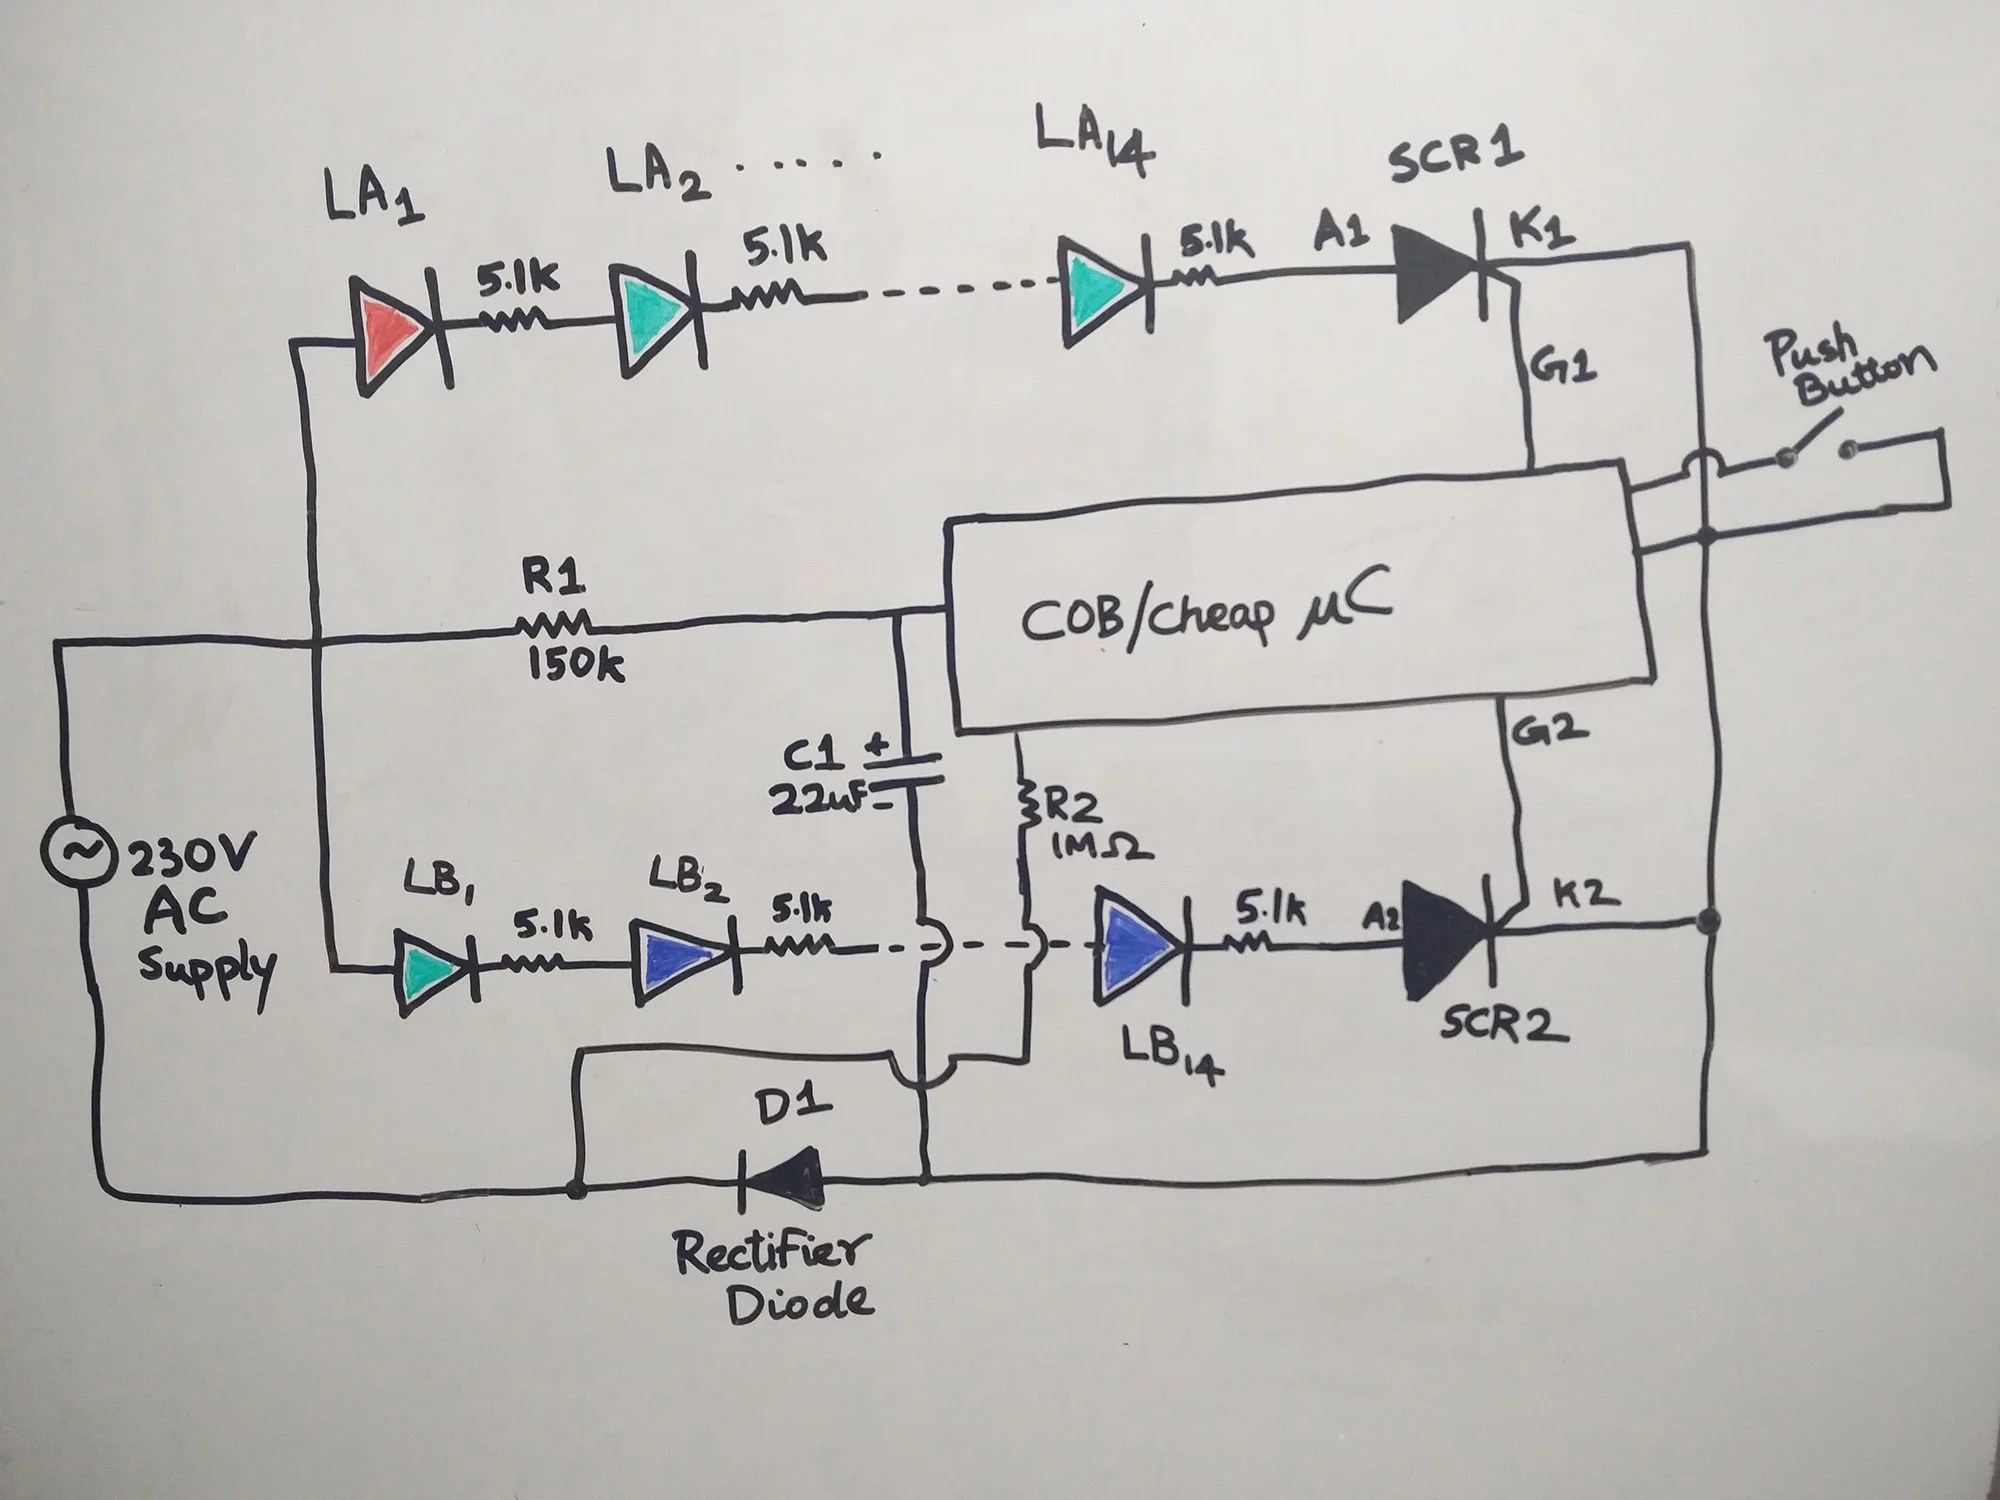 LA1
LA2 .....
LA14
SCR1
5.1k
5.1k
5.1k
A1
K1
G1
Push
Button
R1
150k
COB/Cheap μC
C1 +
22uF -
R2
1MΩ
G2
230V
AC
Supply
LB1
LB2
5.1k
5.1k
5.1k
A2
K2
SCR2
LB14
D1
Rectifier
Diode